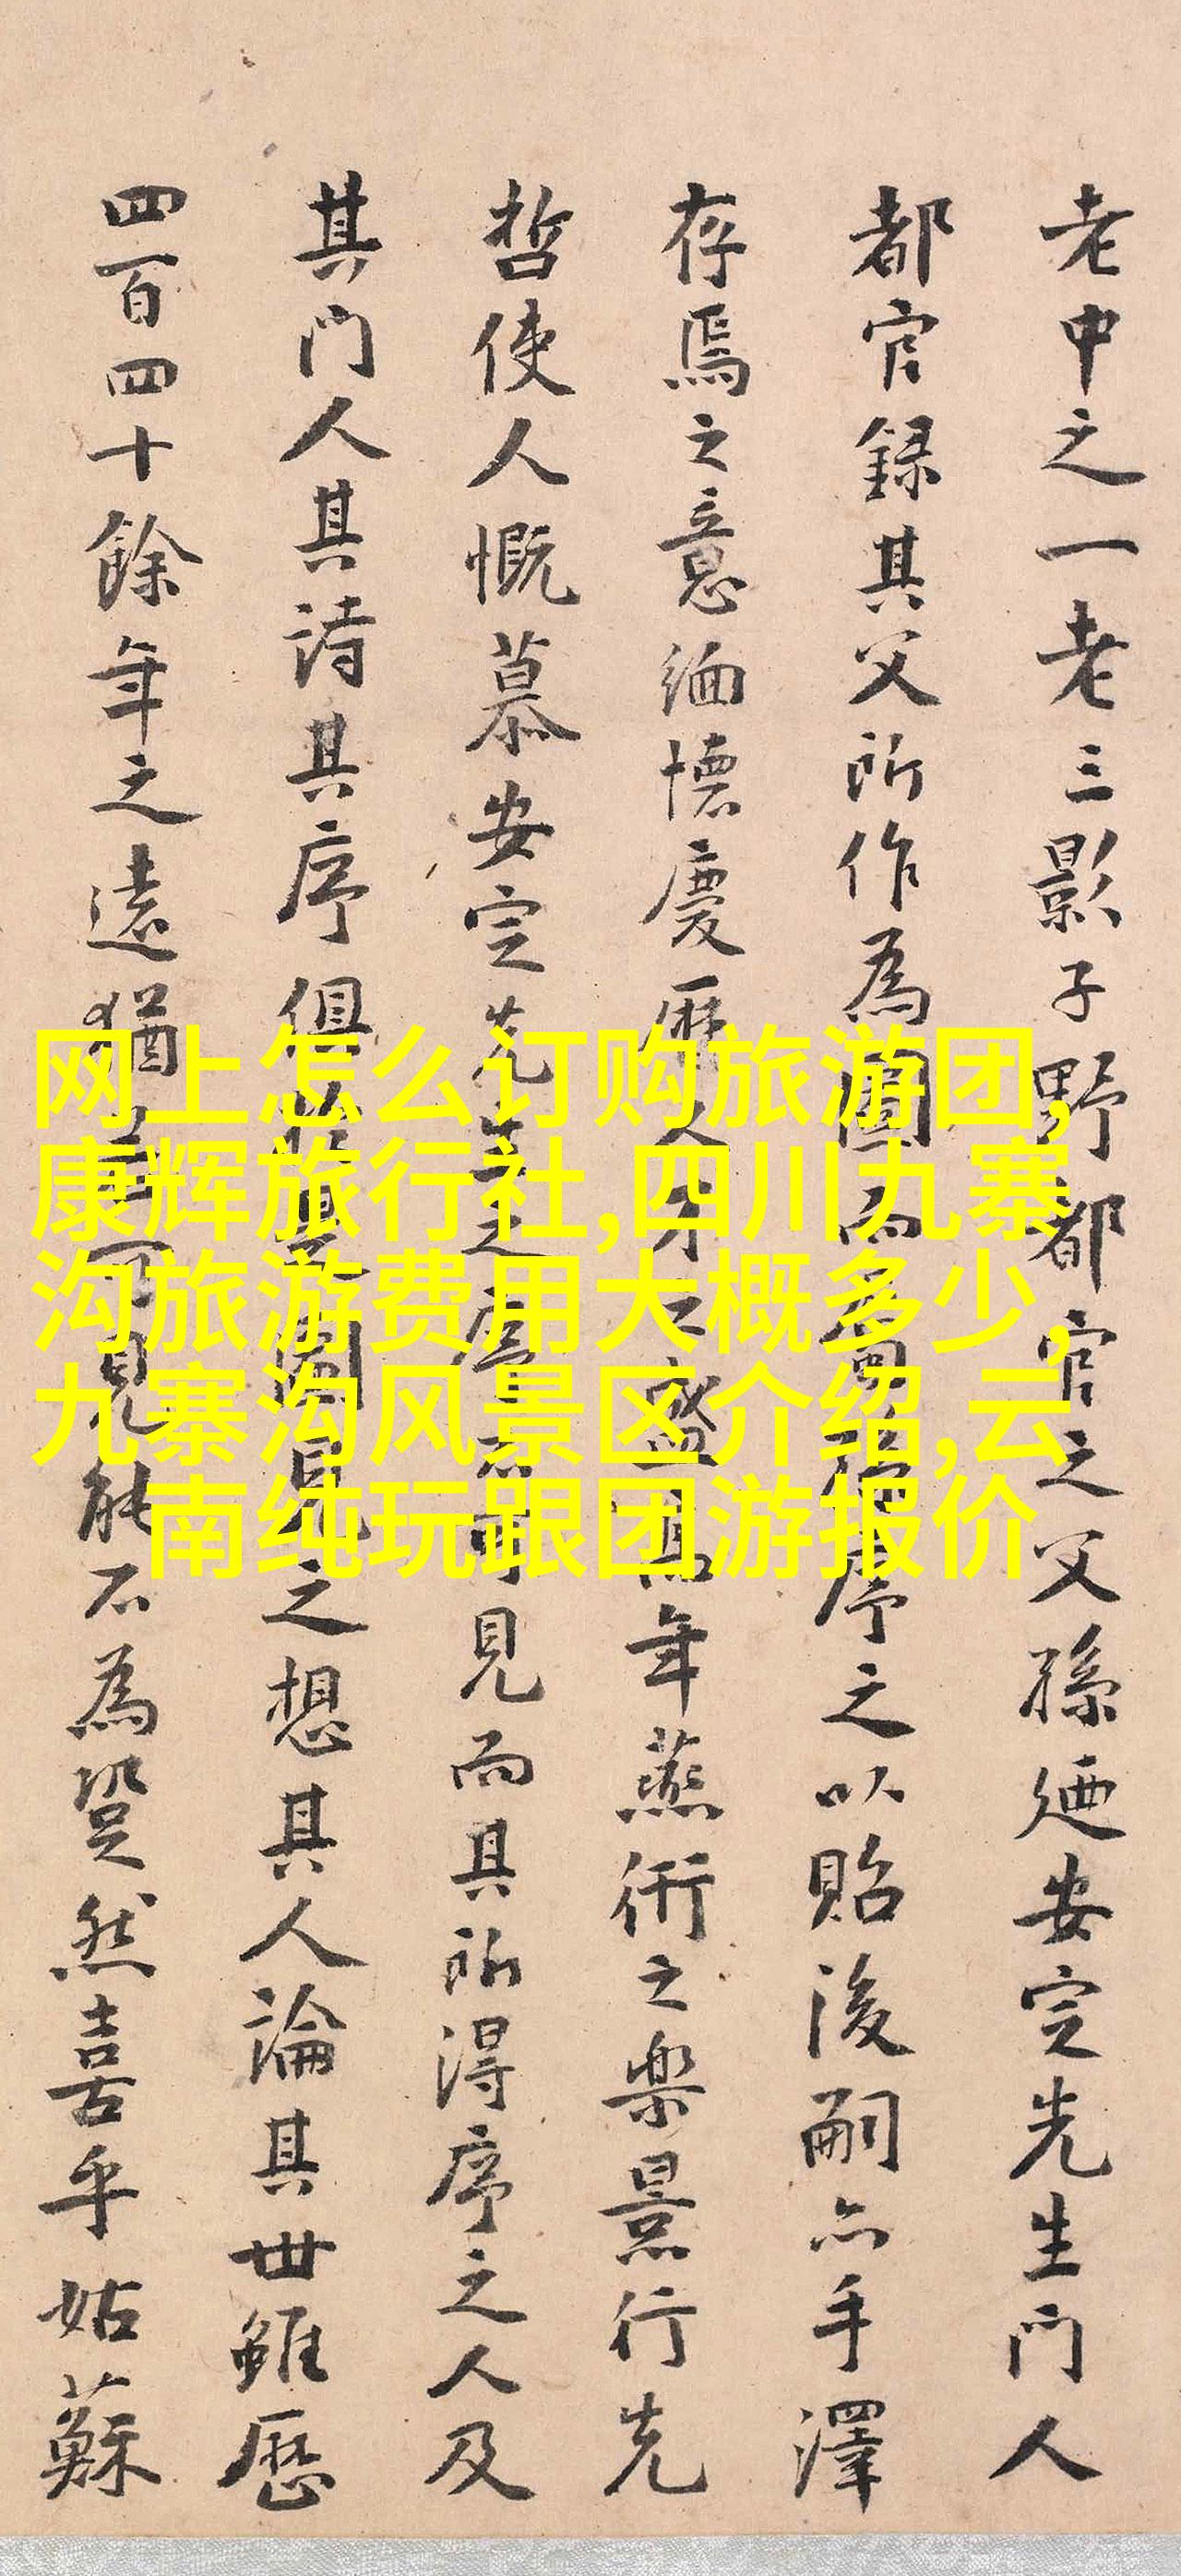 老中之一老三影子野都官之父孫廼安定先生門人
都官録其父所作為圖而序之以貽後嗣亦手澤
存焉之意緬懷慶曆人才之盛高年燕衎之樂景行先
哲使人慨慕安定先生之不可見而其所得序之人及
其門人其詩其序俱見之想其人論其世雖歷
四百四十餘年之遠猶可見能不為跫然喜乎姑蘇
网上怎么订购旅游团,
康辉旅行社,四川九寨
沟旅游费用大概多少,
九寨沟风景区介绍,云
南纯玩跟团游报价